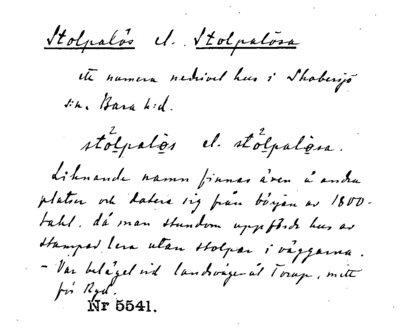 Stolpalös el. Stolpalösa
ett numera nedrivet hus i Skabersjö
s:n, Bara h:d.
stolpales el. stolpalesa.
Liknande namn finnas även å andra
platser och datera sig från början av 1800-
talet, då man stundom uppförde hus av
stampad lera utan stolpar i väggarna.
- Var beläget vid landsvägen åt Torup, mitt
för
Nr 5541.